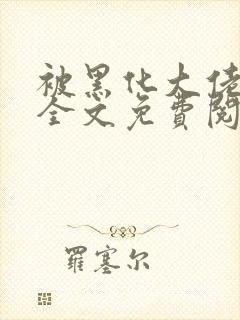 被黑化大佬
全文免费阅
羅塞尔